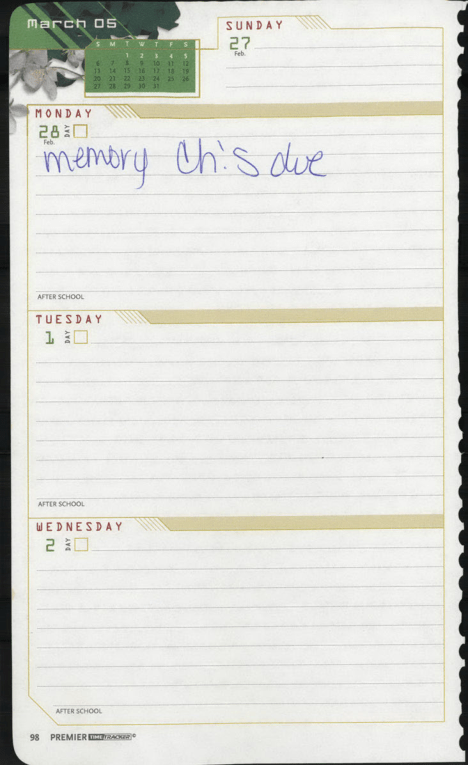 March 05
S M T W T F S
1 2 3 4 5
6 7 8 9 10 11 12
13 14 15 16 17 18 19
20 21 22 23 24 25 26
27 28 29 30 31
SUNDAY
27
Feb.
MONDAY
28 DAY
Feb.
memory Ch's due
AFTER SCHOOL
TUESDAY
1 DAY
AFTER SCHOOL
WEDNESDAY
2 DAY
AFTER SCHOOL
98 PREMIER TIMETRACKER©